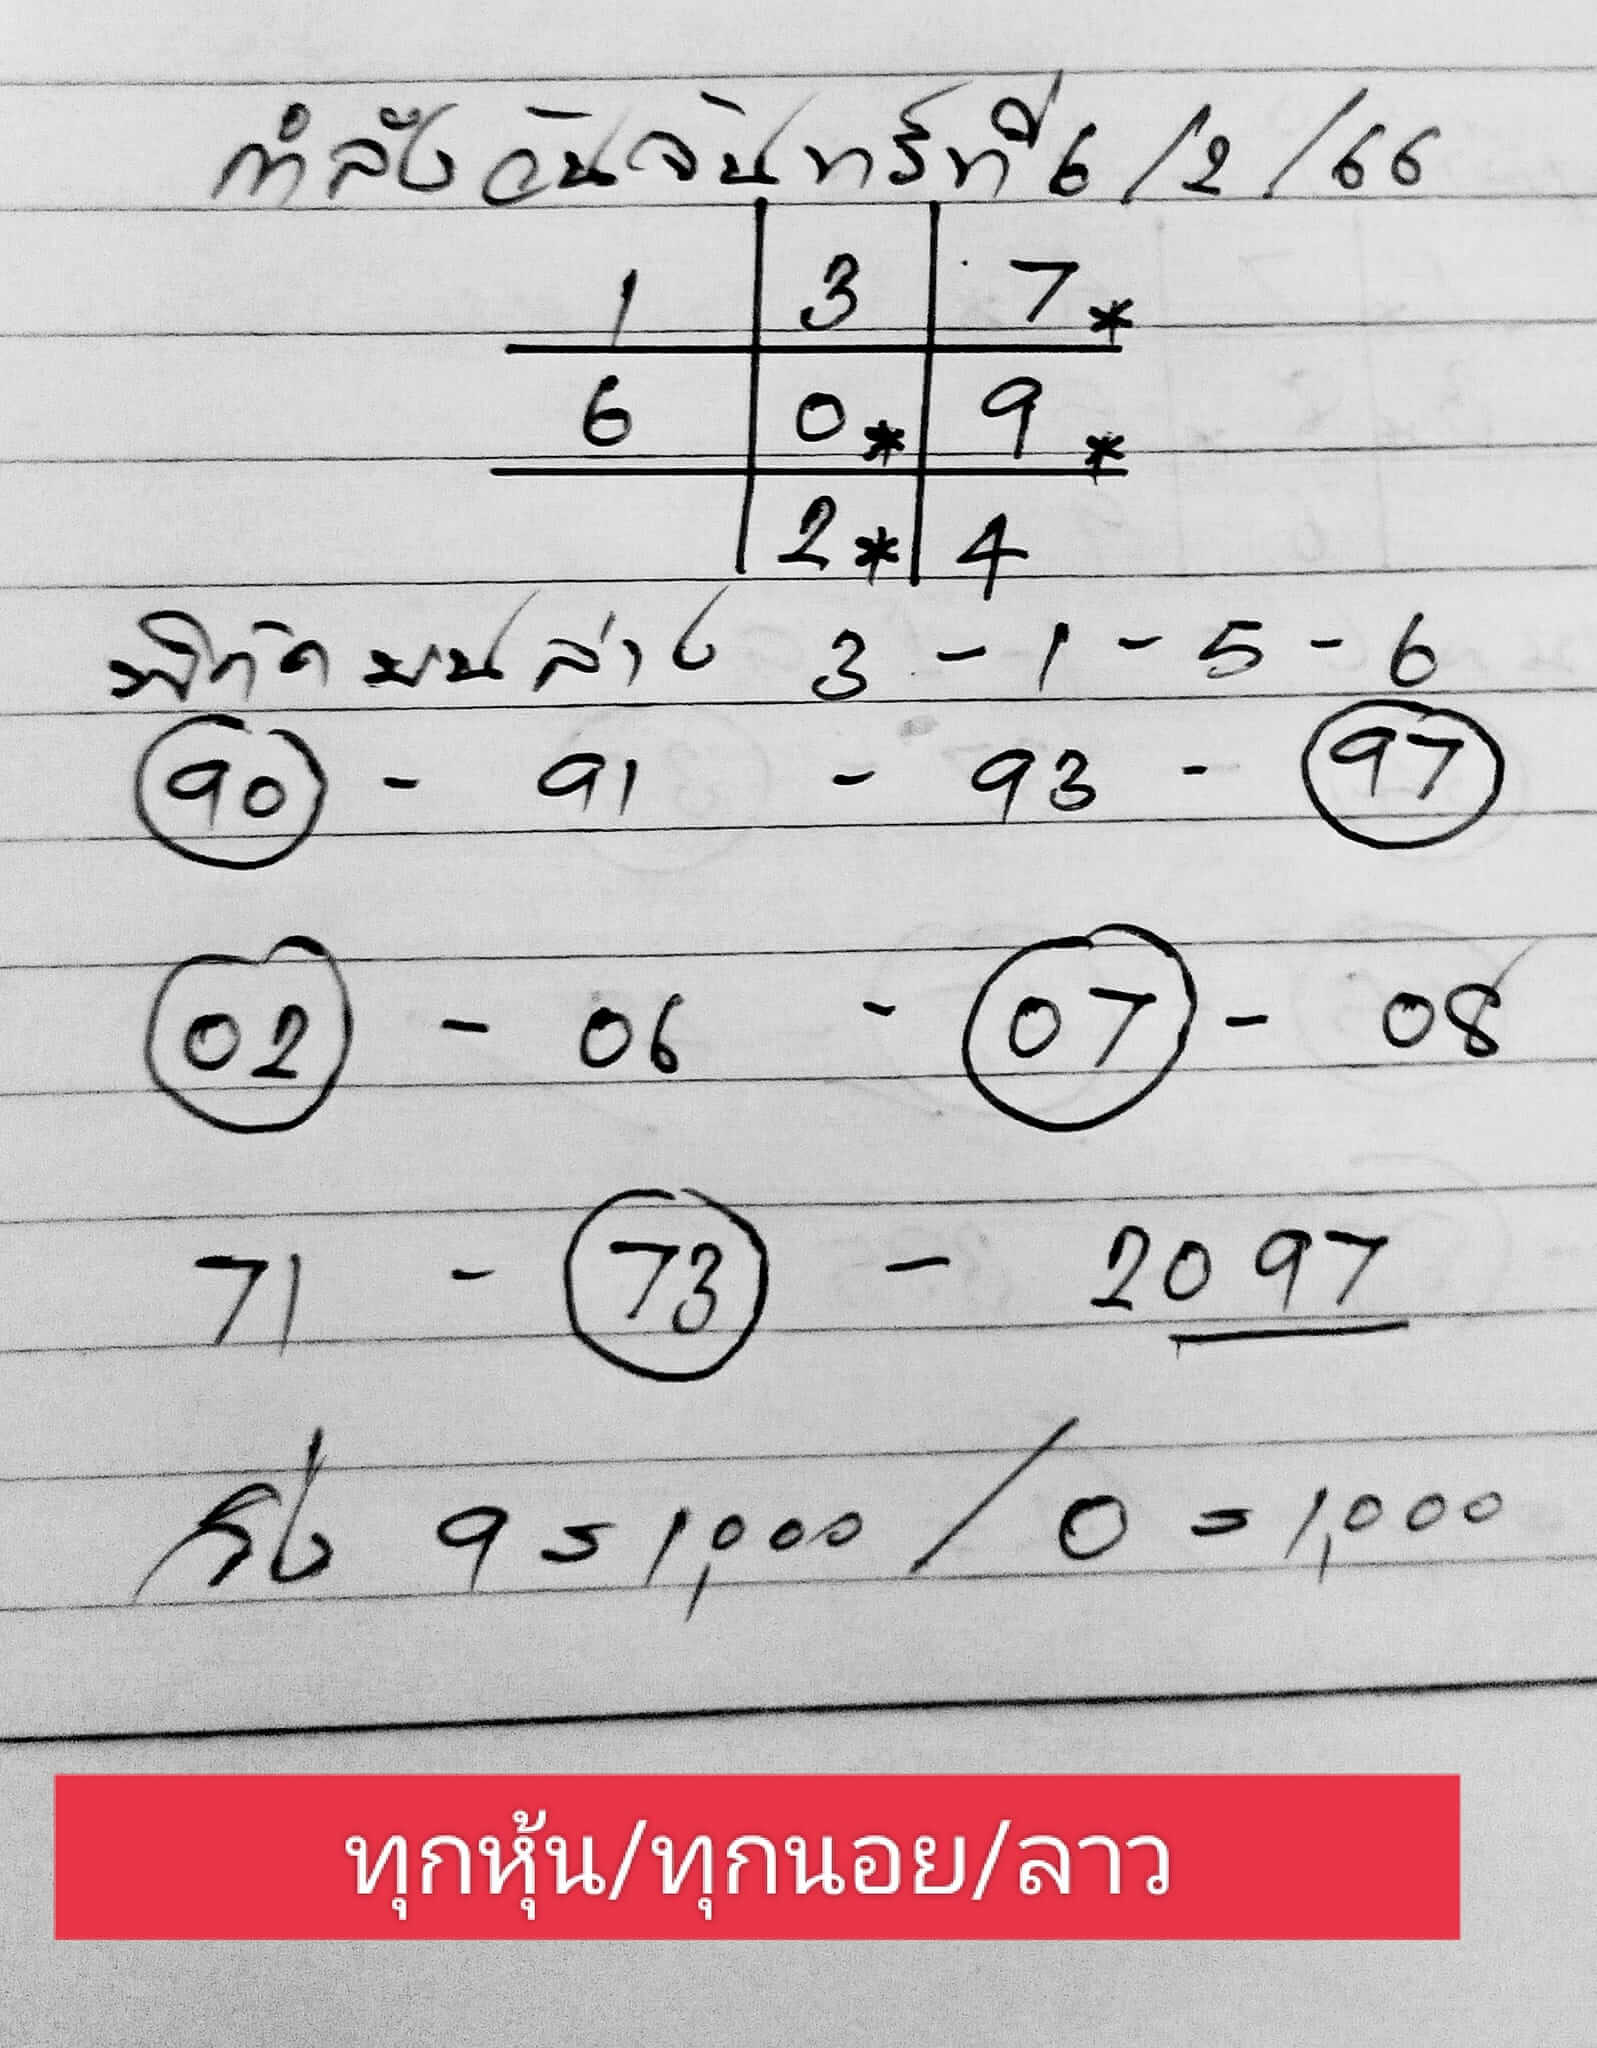 กำลังวันจันทร์ที่ 6/2/66
1 3 7*
6 0* 9*
2* 4
พิกัดบนล่าง 3 - 1 - 5 - 6
90 - 91 - 93 - 97
02 - 06 - 07 - 08
71 - 73 - 2097
วิ่ง 9 = 1,000 / 0 = 1,000
ทุกหุ้น/ทุกนอย/ลาว